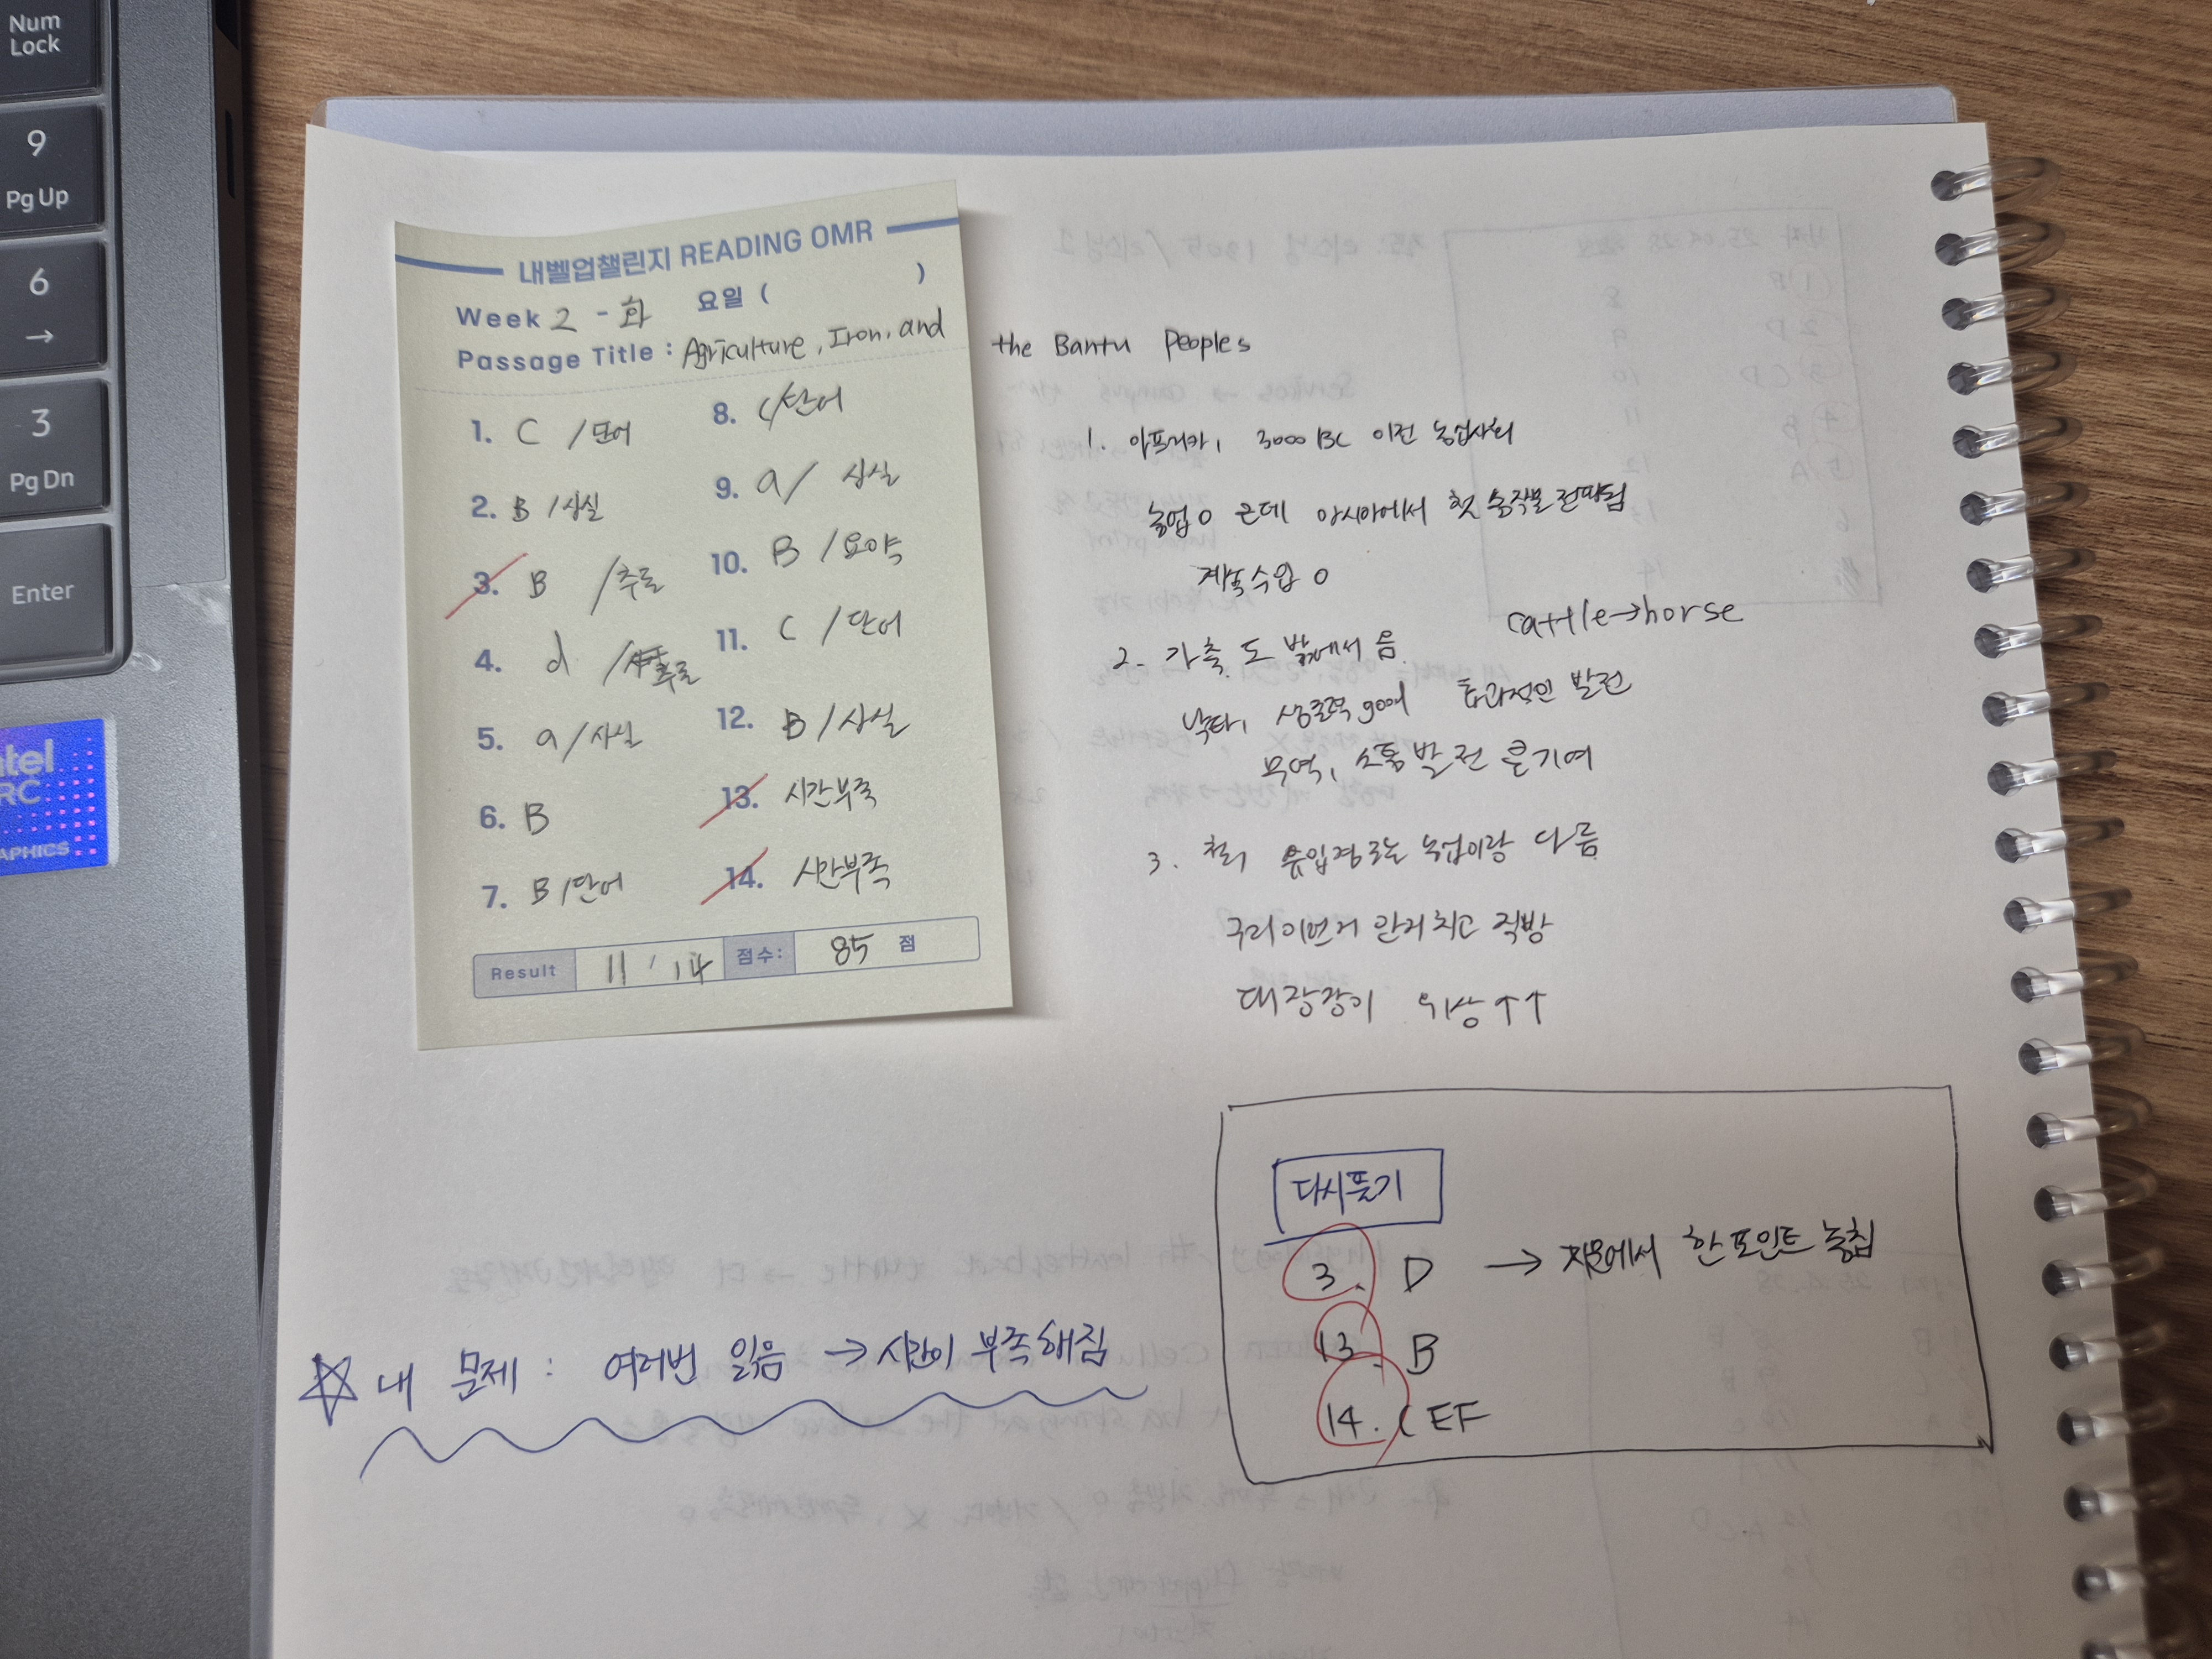 Num
Lock
9
Pg Up
6
→
3
Pg Dn
Enter
intel
ARC
GRAPHICS
내벨업챌린지 READING OMR
Week 2 - 화 요일 ( )
Passage Title : Agriculture, Iron, and the Bantu Peoples
1. C /단어
2. B /사실
3. B /추론
4. d /추론
5. a /사실
6. B
7. B /단어
8. C/단어
9. a/ 사실
10. B /요약
11. C /단어
12. B /사실
13. 시간부족
14. 시간부족
Result 11 / 14 점수: 85 점
1. 아프리카, 3000 BC 이전 농업사회
농업 0 근데 아시아에서 첫 농작물 전파됨
계속수입 0
2. 가축 도 밖에서 옴. cattle→horse
낙타, 효과적인 발전
무역, 소통발전 큰기여
3. 철의 유입경로는 농업이랑 다름
구리 이런거 안거치고 직방
대장장이 위상↑↑
다시풀기
3. D → 지문에서 한포인트 놓침
13. B
14. C EF
☆ 내 문제 : 여러번 읽음 → 시간이 부족해짐